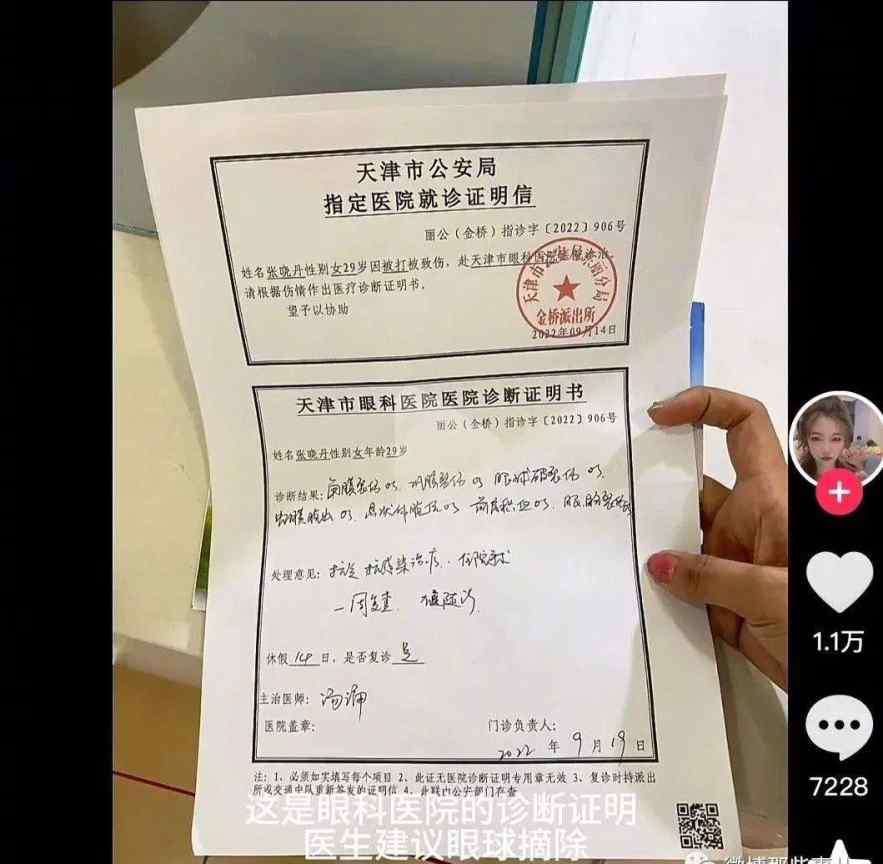 天津市公安局
指定医院就诊证明信
丽公（金桥）指诊字〔2022〕906号
姓名张晓丹性别女29岁因被打被致伤，赴天津市眼科医院
请根据伤情作出医疗诊断证明书。
望予以协助
金桥派出所
2022年09月14日
天津市眼科医院医院诊断证明书
丽公（金桥）指诊字〔2022〕906号
姓名张晓丹性别女年龄29岁
诊断结果：角膜裂伤 os. 巩膜裂伤 os 眼球破裂伤 os.
脱出 os. 晶状体脱位os 前房积血os. 眼睑裂伤
处理意见：抗炎 抗感染治疗. 住院手术
一周复查.
休假14日，是否复诊是
主治医师：
医院盖章：
门诊负责人：
2022年9月19日
注：1、必须如实填写每个项目 2、此证无医院诊断证明专用章无效 3、复诊时持派出
所或交通中队重新签发的证明信 4、此联由公安部门存查
这是眼科医院的诊断证明
医生建议眼球摘除
1.1万
7228